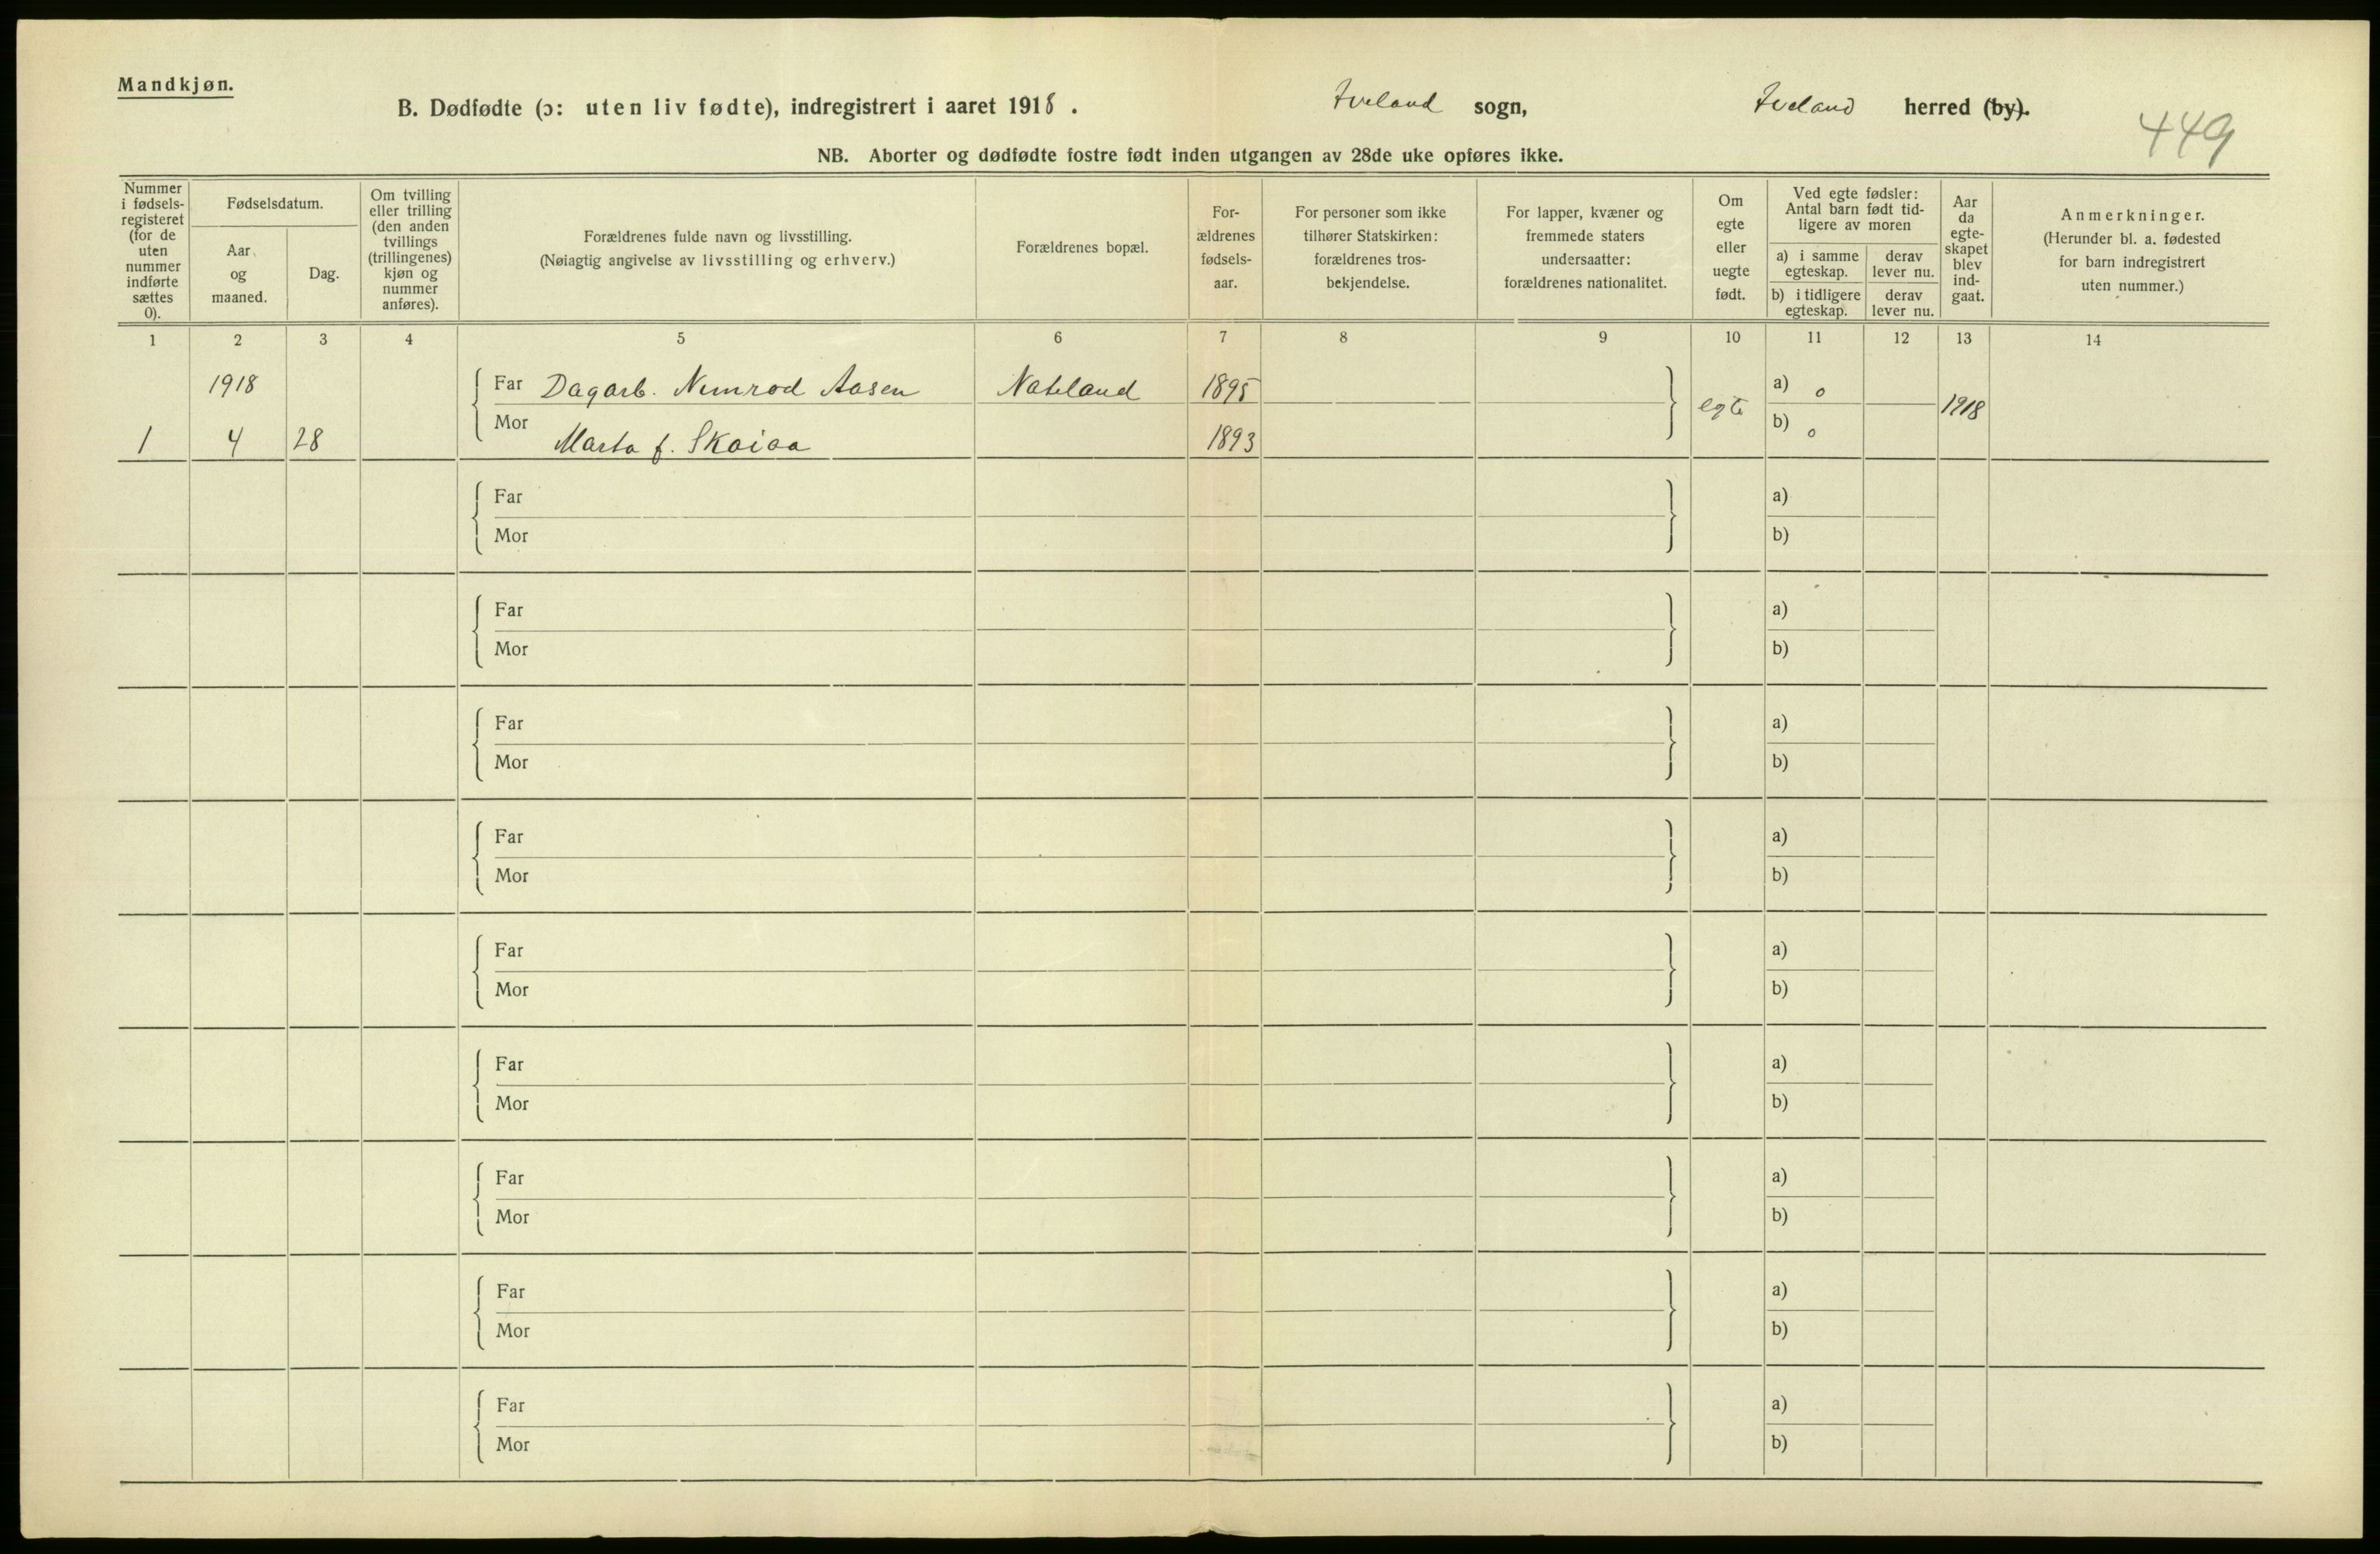 Mandkjøn.
B. Dødfødte (ɔ: uten liv fødte), indregistrert i aaret 1918. Iveland sogn, Iveland herred (by).
449
NB. Aborter og dødfødte fostre født inden utgangen av 28de uke opføres ikke.
Nummer
i fødsels-
registeret
(for de
uten
nummer
indførte
sættes
0).
Fødselsdatum.
Aar
og
maaned.
Dag.
Om tvilling
eller trilling
(den anden
tvillings
(trillingenes)
kjøn og
nummer
anføres).
Forældrenes fulde navn og livsstilling.
(Nøiagtig angivelse av livsstilling og erhverv.)
Forældrenes bopæl.
For-
ældrenes
fødsels-
aar.
For personer som ikke
tilhører Statskirken:
forældrenes tros-
bekjendelse.
For lapper, kvæner og
fremmede staters
undersaatter:
forældrenes nationalitet.
Om
egte
eller
uegte
født.
Ved egte fødsler:
Antal barn født tid-
ligere av moren
a) i samme
egteskap.
derav
lever nu.
b) i tidligere
egteskap.
derav
lever nu.
Aar
da
egte-
skapet
blev
ind-
gaat.
Anmerkninger.
(Herunder bl. a. fødested
for barn indregistrert
uten nummer.)
1 2 3 4 5 6 7 8 9 10 11 12 13 14
1918 Far Dagarb. Nimrod Aasen Nateland 1895 egte a) 0 1918
1 4 28 Mor Marta f. Skaiaa 1893 b) 0
Far a)
Mor b)
Far a)
Mor b)
Far a)
Mor b)
Far a)
Mor b)
Far a)
Mor b)
Far a)
Mor b)
Far a)
Mor b)
Far a)
Mor b)
Far a)
Mor b)